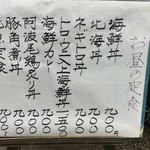 お昼の定食
海鮮丼 九〇〇
北海丼 九〇〇
ネギトロ丼 九〇〇
トロウニ入上海鮮丼 一五〇〇
海鮮カレー 九〇〇
阿波尾鶏炙り丼 九〇〇
豚角煮丼 九〇〇